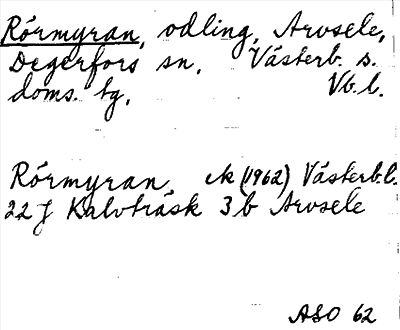 Rörmyran, odling, Arvsele,
Degerfors sn. Västerb. s.
doms. tg. Vb. l.
Rörmyran ek (1962) Västerb.l.
22 J Kalvträsk 3 b Arvsele
ASO 62